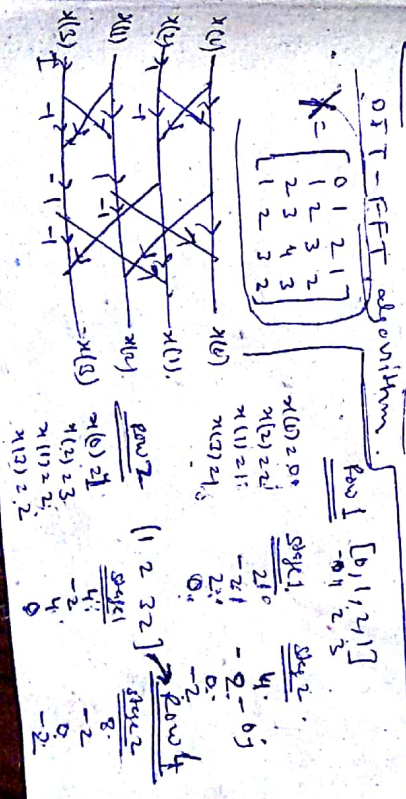 DIT - FFT algorithm.
X =
0 1 2 1
1 2 3 2
2 3 4 3
1 2 3 2
x(0)
x(2)
x(1)
x(3)
-1
-1
-1
-1
x(0)
x(1).
x(2).
x(3)
Row 1 [0, 1, 2, 1]
0 1 2 3
x(0) = 0
x(2) = 2
x(1) = 1
x(3) = 1
stage 1
2
-2
2
0
stage 2
4
-2 - 0j
0
-2
Row 2
[1 2 3 2]
Row 4
x(0) = 1
x(2) = 3
x(1) = 2
x(3) = 2
stage 1
4
-2
4
0
stage 2
8
-2
0
-2